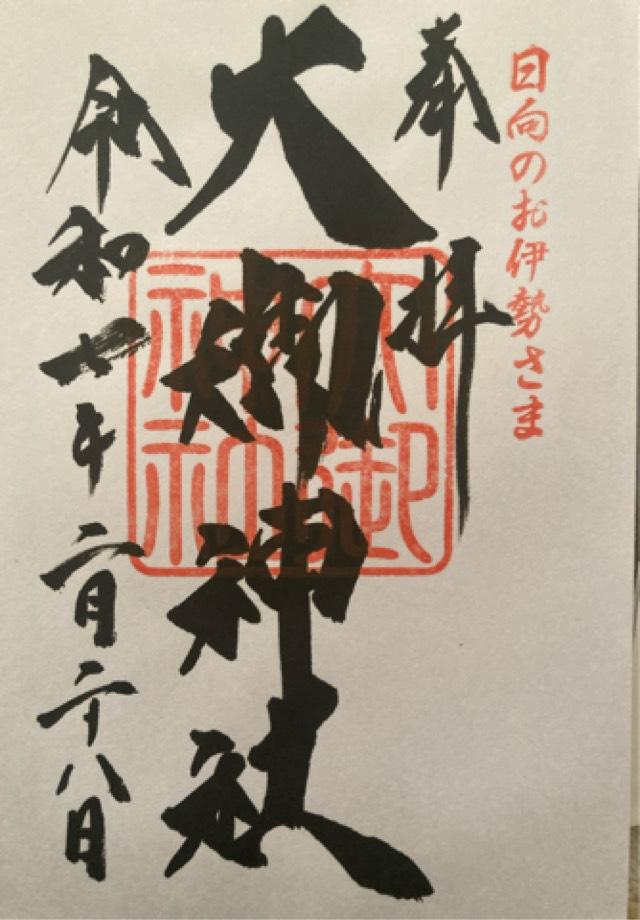 日向のお伊勢さま
奉拝
大御神社
大御神社
令和七年二月二十八日